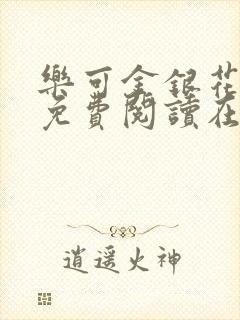 樂可金銀花
免費閱讀在
逍遥火神